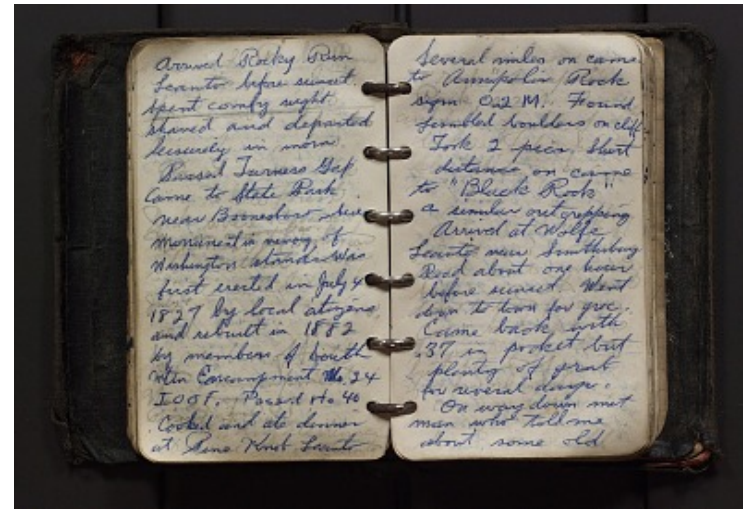 Arrived Rocky Run
Leanto before sunset
Spent comfy night
shaved and departed
leisurely in morn.
Passed Turners Gap
Came to State Park
near Boonesboro where
Monument in memory of
Washington stands. Was
first erected in July 4
1827 by local citizens
and rebuilt in 1882
by members of South
Mtn Encampment No. 24
I.O.O.F. Passed Rt. 40
Cooked and ate dinner
at Pine Knob Leanto
Several miles on came
to Annapolis Rock
sign 0.2 M. Found
tumbled boulders on cliff
Took 2 pics. Short
distance on came
to "Black Rock"
a similar outcropping
Arrived at Wolfe
Leanto near Smithsburg
Road about one hour
before sunset. Went
down to town for groc.
Came back with
.37 in pocket but
plenty of grub
for several days.
On way down met
man who told me
about some old